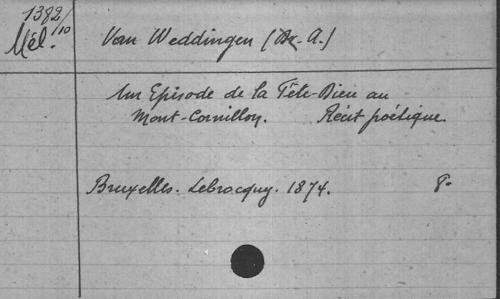 1382/10
Mél.
Van Weddingen (A.)
Un Episode de la Fête-Dieu au
Mont-Cornillon. Récit poétique.
Bruxelles. Lebrocquy. 1874. 8°